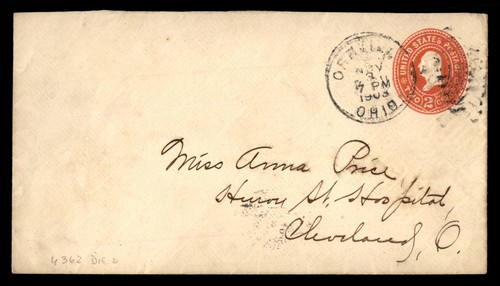 ORRVILLE
NOV
7 PM
1903
OHIO
UNITED STATES POSTAGE
2
Miss Anna Price,
Huron St. Hospital,
Cleveland, O.
4362 Die 2